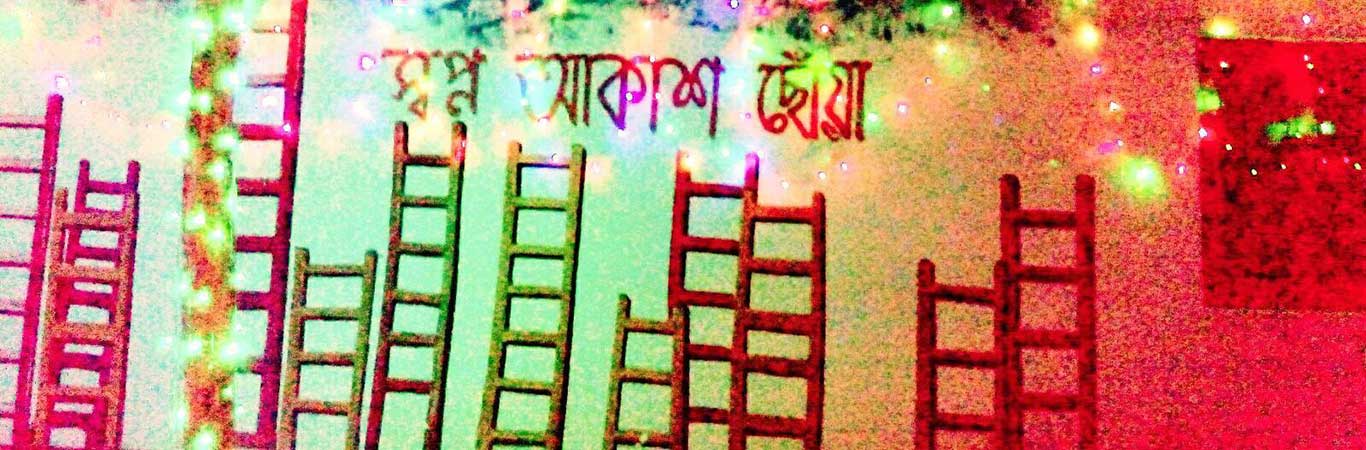 স্বপ্ন আকাশ ছোঁয়া